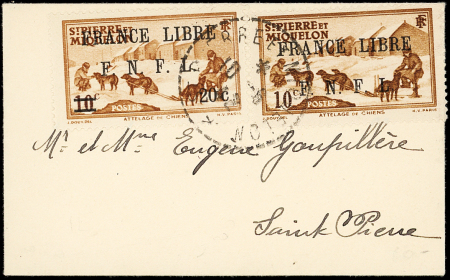 ST PIERRE ET
MIQUELON
RF
FRANCE LIBRE
F. N. F. L.
10c 20c.
POSTES
ATTELAGE DE CHIENS
ST PIERRE ET
MIQUELON
RF
FRANCE LIBRE
F. N. F. L.
10c
POSTES
ATTELAGE DE CHIENS
Mr et Mme Eugène Goupillère
Saint Pierre